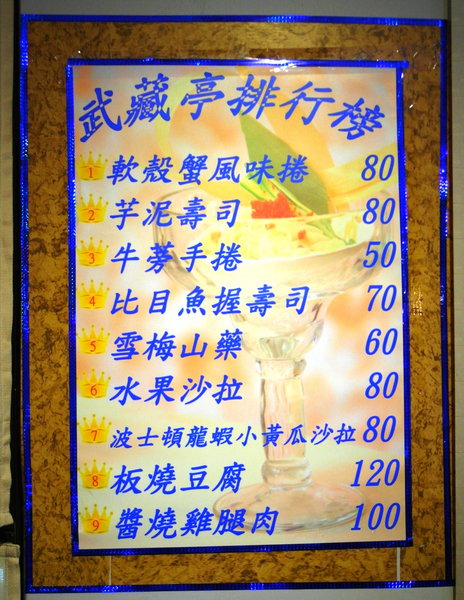 武藏亭排行榜
1 軟殼蟹風味捲 80
2 芋泥壽司 80
3 牛蒡手捲 50
4 比目魚握壽司 70
5 雪梅山藥 60
6 水果沙拉 80
7 波士頓龍蝦小黃瓜沙拉 80
8 板燒豆腐 120
9 醬燒雞腿肉 100